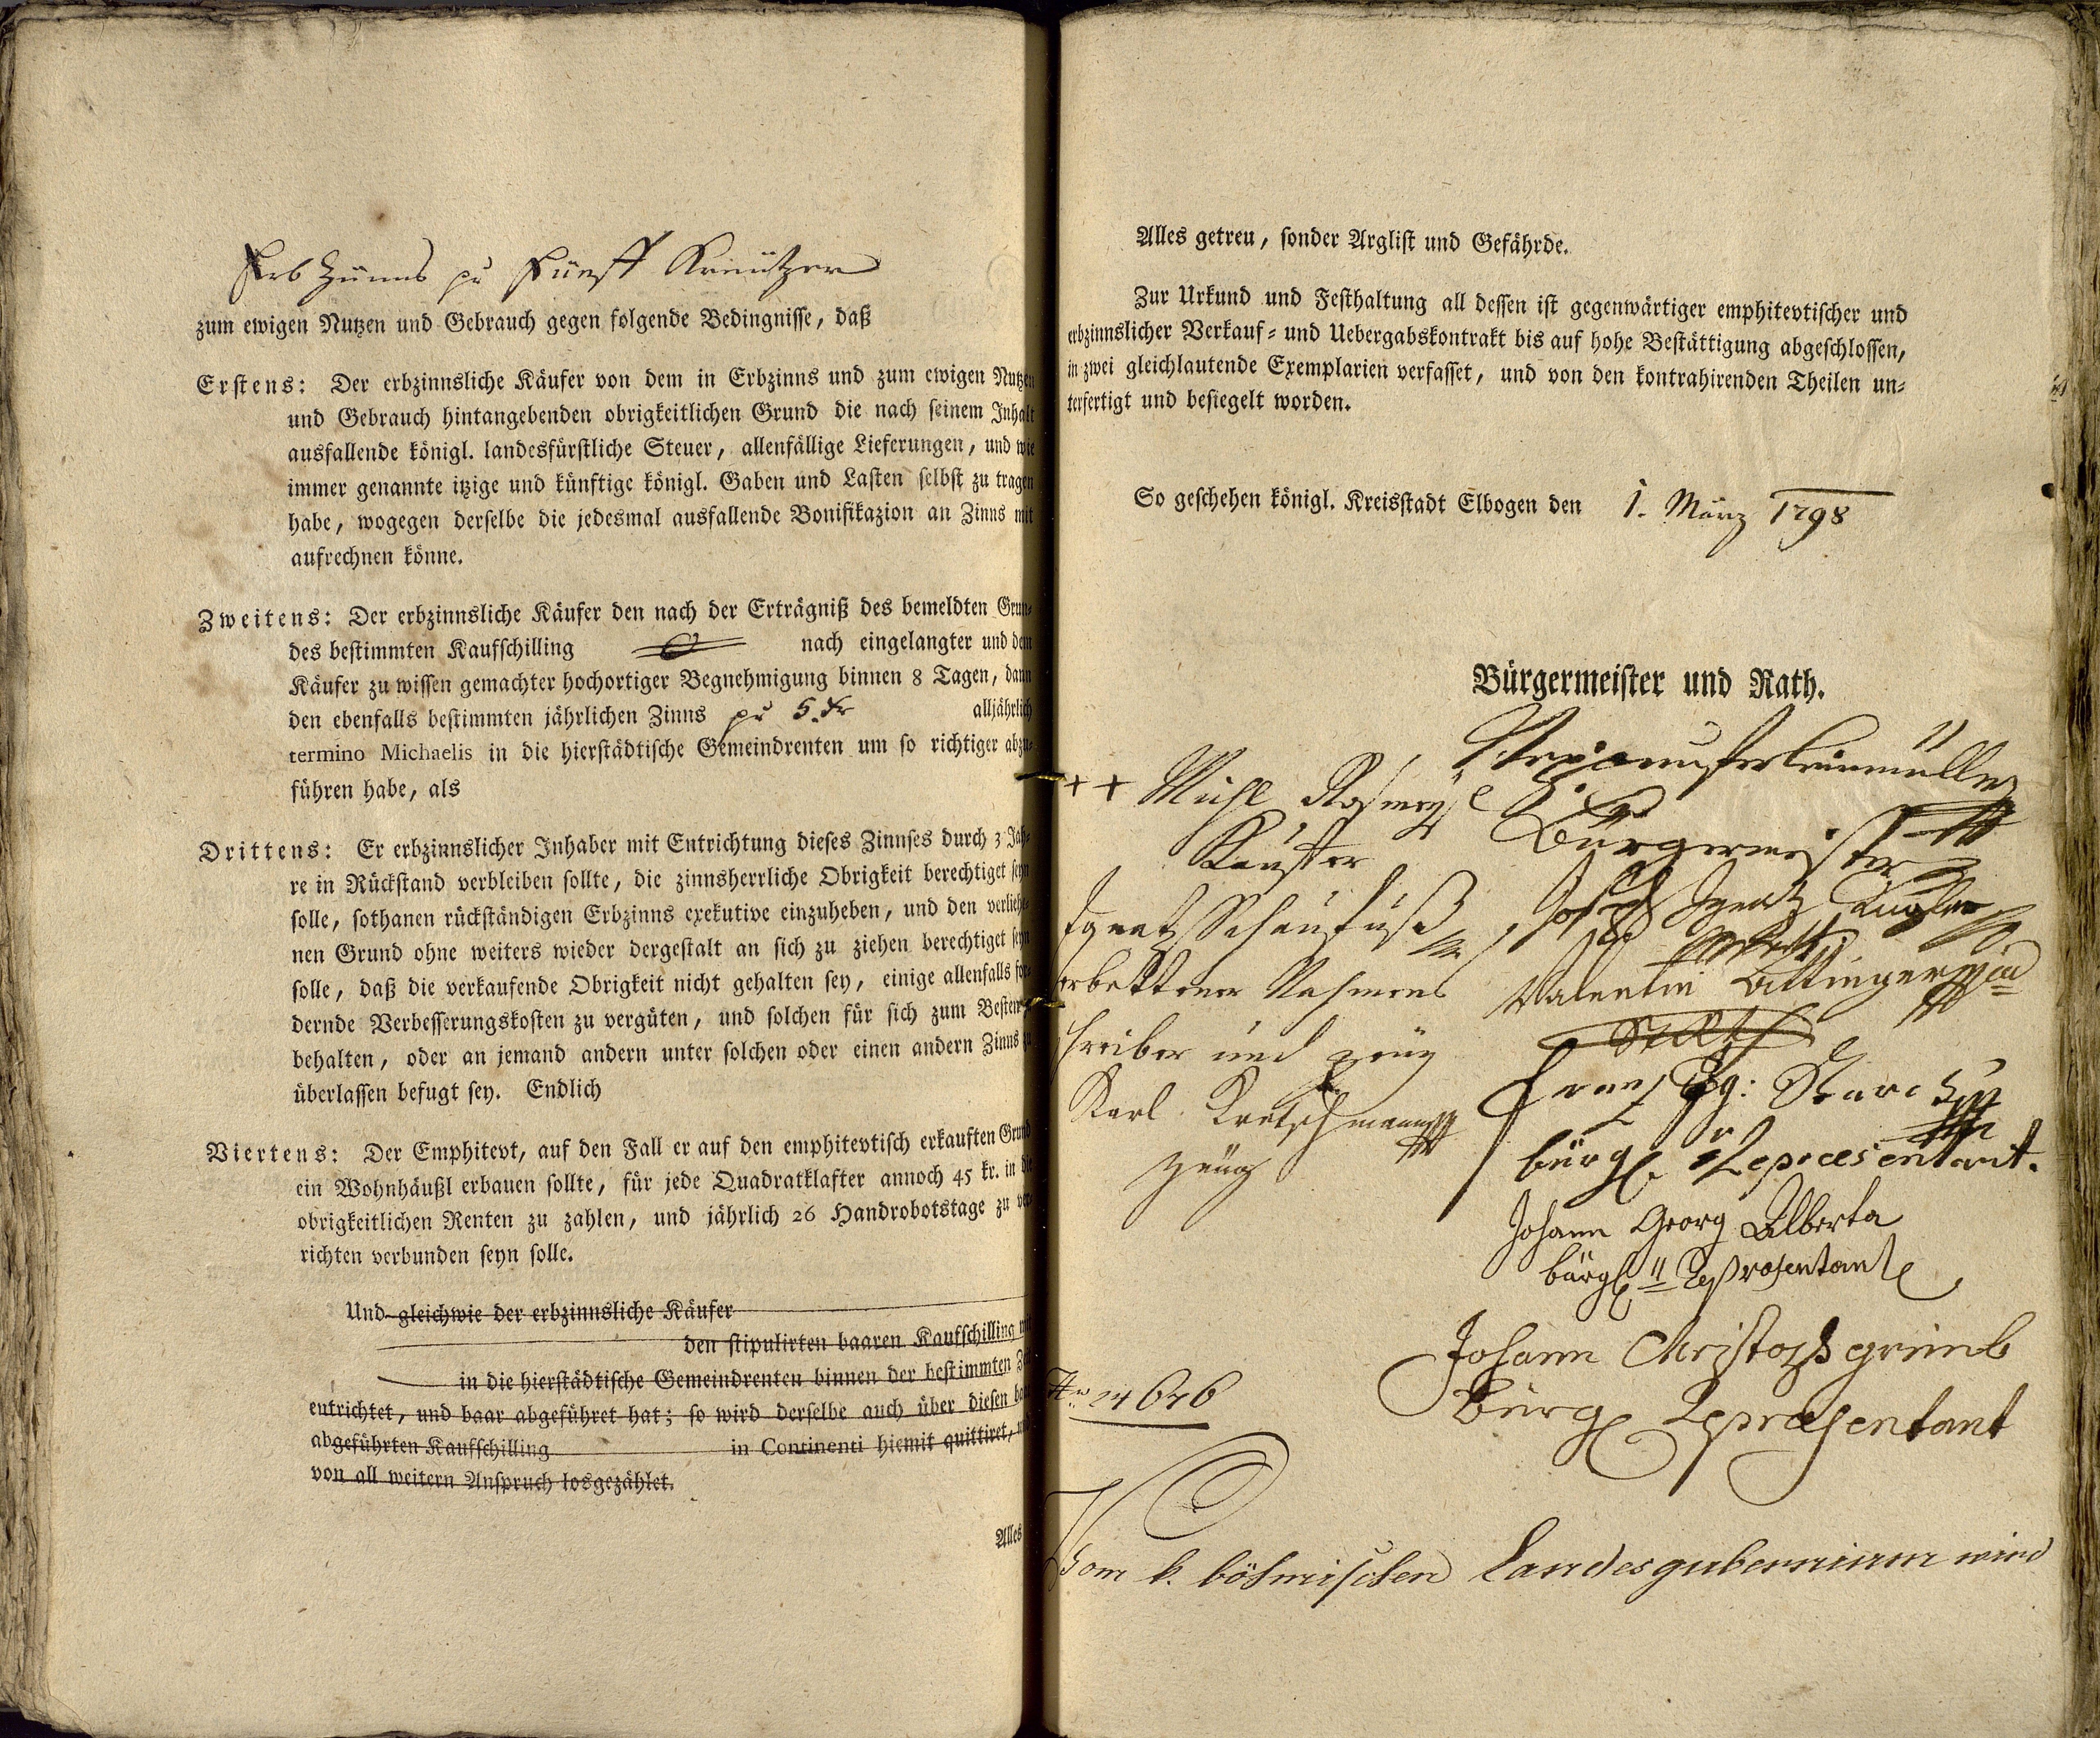 Erb Zünns pr Fünff Kreützer
zum ewigen Nutzen und Gebrauch gegen folgende Bedingnisse, daß
Erstens: Der erbzinnsliche Käufer von dem in Erbzinns und zum ewigen Nutzen
und Gebrauch hintangebenden obrigkeitlichen Grund die nach seinem Inhalt
ausfallende königl. landesfürstliche Steuer, allenfällige Lieferungen, und wie
immer genannte itzige und künftige königl. Gaben und Lasten selbst zu tragen
habe, wogegen derselbe die jedesmal ausfallende Bonifikazion an Zinns mit
aufrechnen könne.
Zweitens: Der erbzinnsliche Käufer den nach der Erträgniß des bemeldten Grun-
des bestimmten Kaufschilling nach eingelangter und dem
Käufer zu wissen gemachter hochortiger Begnehmigung binnen 8 Tagen, dann
den ebenfalls bestimmten jährlichen Zinns pr 5 kr alljährlich
termino Michaelis in die hierstädtische Gemeindrenten um so richtiger abzu-
führen habe, als
Drittens: Er erbzinnslicher Inhaber mit Entrichtung dieses Zinnses durch 3 Jah-
re in Rückstand verbleiben sollte, die zinnsherrliche Obrigkeit berechtiget seyn
solle, sothanen rückständigen Erbzinns exekutive einzuheben, und den verliehe-
nen Grund ohne weiters wieder dergestalt an sich zu ziehen berechtiget seyn
solle, daß die verkaufende Obrigkeit nicht gehalten sey, einige allenfalls for-
dernde Verbesserungskosten zu vergüten, und solchen für sich zum Besten
behalten, oder an jemand andern unter solchen oder einen andern Zinns zu
überlassen befugt sey. Endlich
Viertens: Der Emphitevt, auf den Fall er auf den emphitevtisch erkauften Grund
ein Wohnhäußl erbauen sollte, für jede Quadratklafter annoch 45 kr. in die
obrigkeitlichen Renten zu zahlen, und jährlich 26 Handrobotstage zu ver-
richten verbunden seyn solle.
Und gleichwie der erbzinnsliche Käufer
den stipulirten baaren Kaufschilling mit
in die hierstädtische Gemeindrenten binnen der bestimmten Zeit
entrichtet, und baar abgeführet hat; so wird derselbe auch über diesen baar
abgeführten Kaufschilling in Continenti hiemit quittiret, und
von all weitern Anspruch losgezählet.
Alles
Alles getreu, sonder Arglist und Gefährde.
Zur Urkund und Festhaltung all dessen ist gegenwärtiger emphitevtischer und
erbzinnslicher Verkauf- und Uebergabskontrakt bis auf hohe Bestättigung abgeschlossen,
in zwei gleichlautende Exemplarien verfasset, und von den kontrahirenden Theilen un-
terfertigt und besiegelt worden.
So geschehen königl. Kreisstadt Elbogen den 1. März 1798
Bürgermeister und Rath.
Bürgermeister
++ Michl
Kauffer
Joseph Ignatz
Ignatz Schaufuß
Valentin Attinger
erbettener Nahmens
schreiber und zeüg
Rath
Franz Starck
Karl Kretschmann
zeüg
bürgl. Repræsentant.
Johann Georg Alberta
bürgl. Repræsentant
Johann Christoph grimb
Bürgl Repræsentant
Vom k. böhmischen Landesgubernium wird